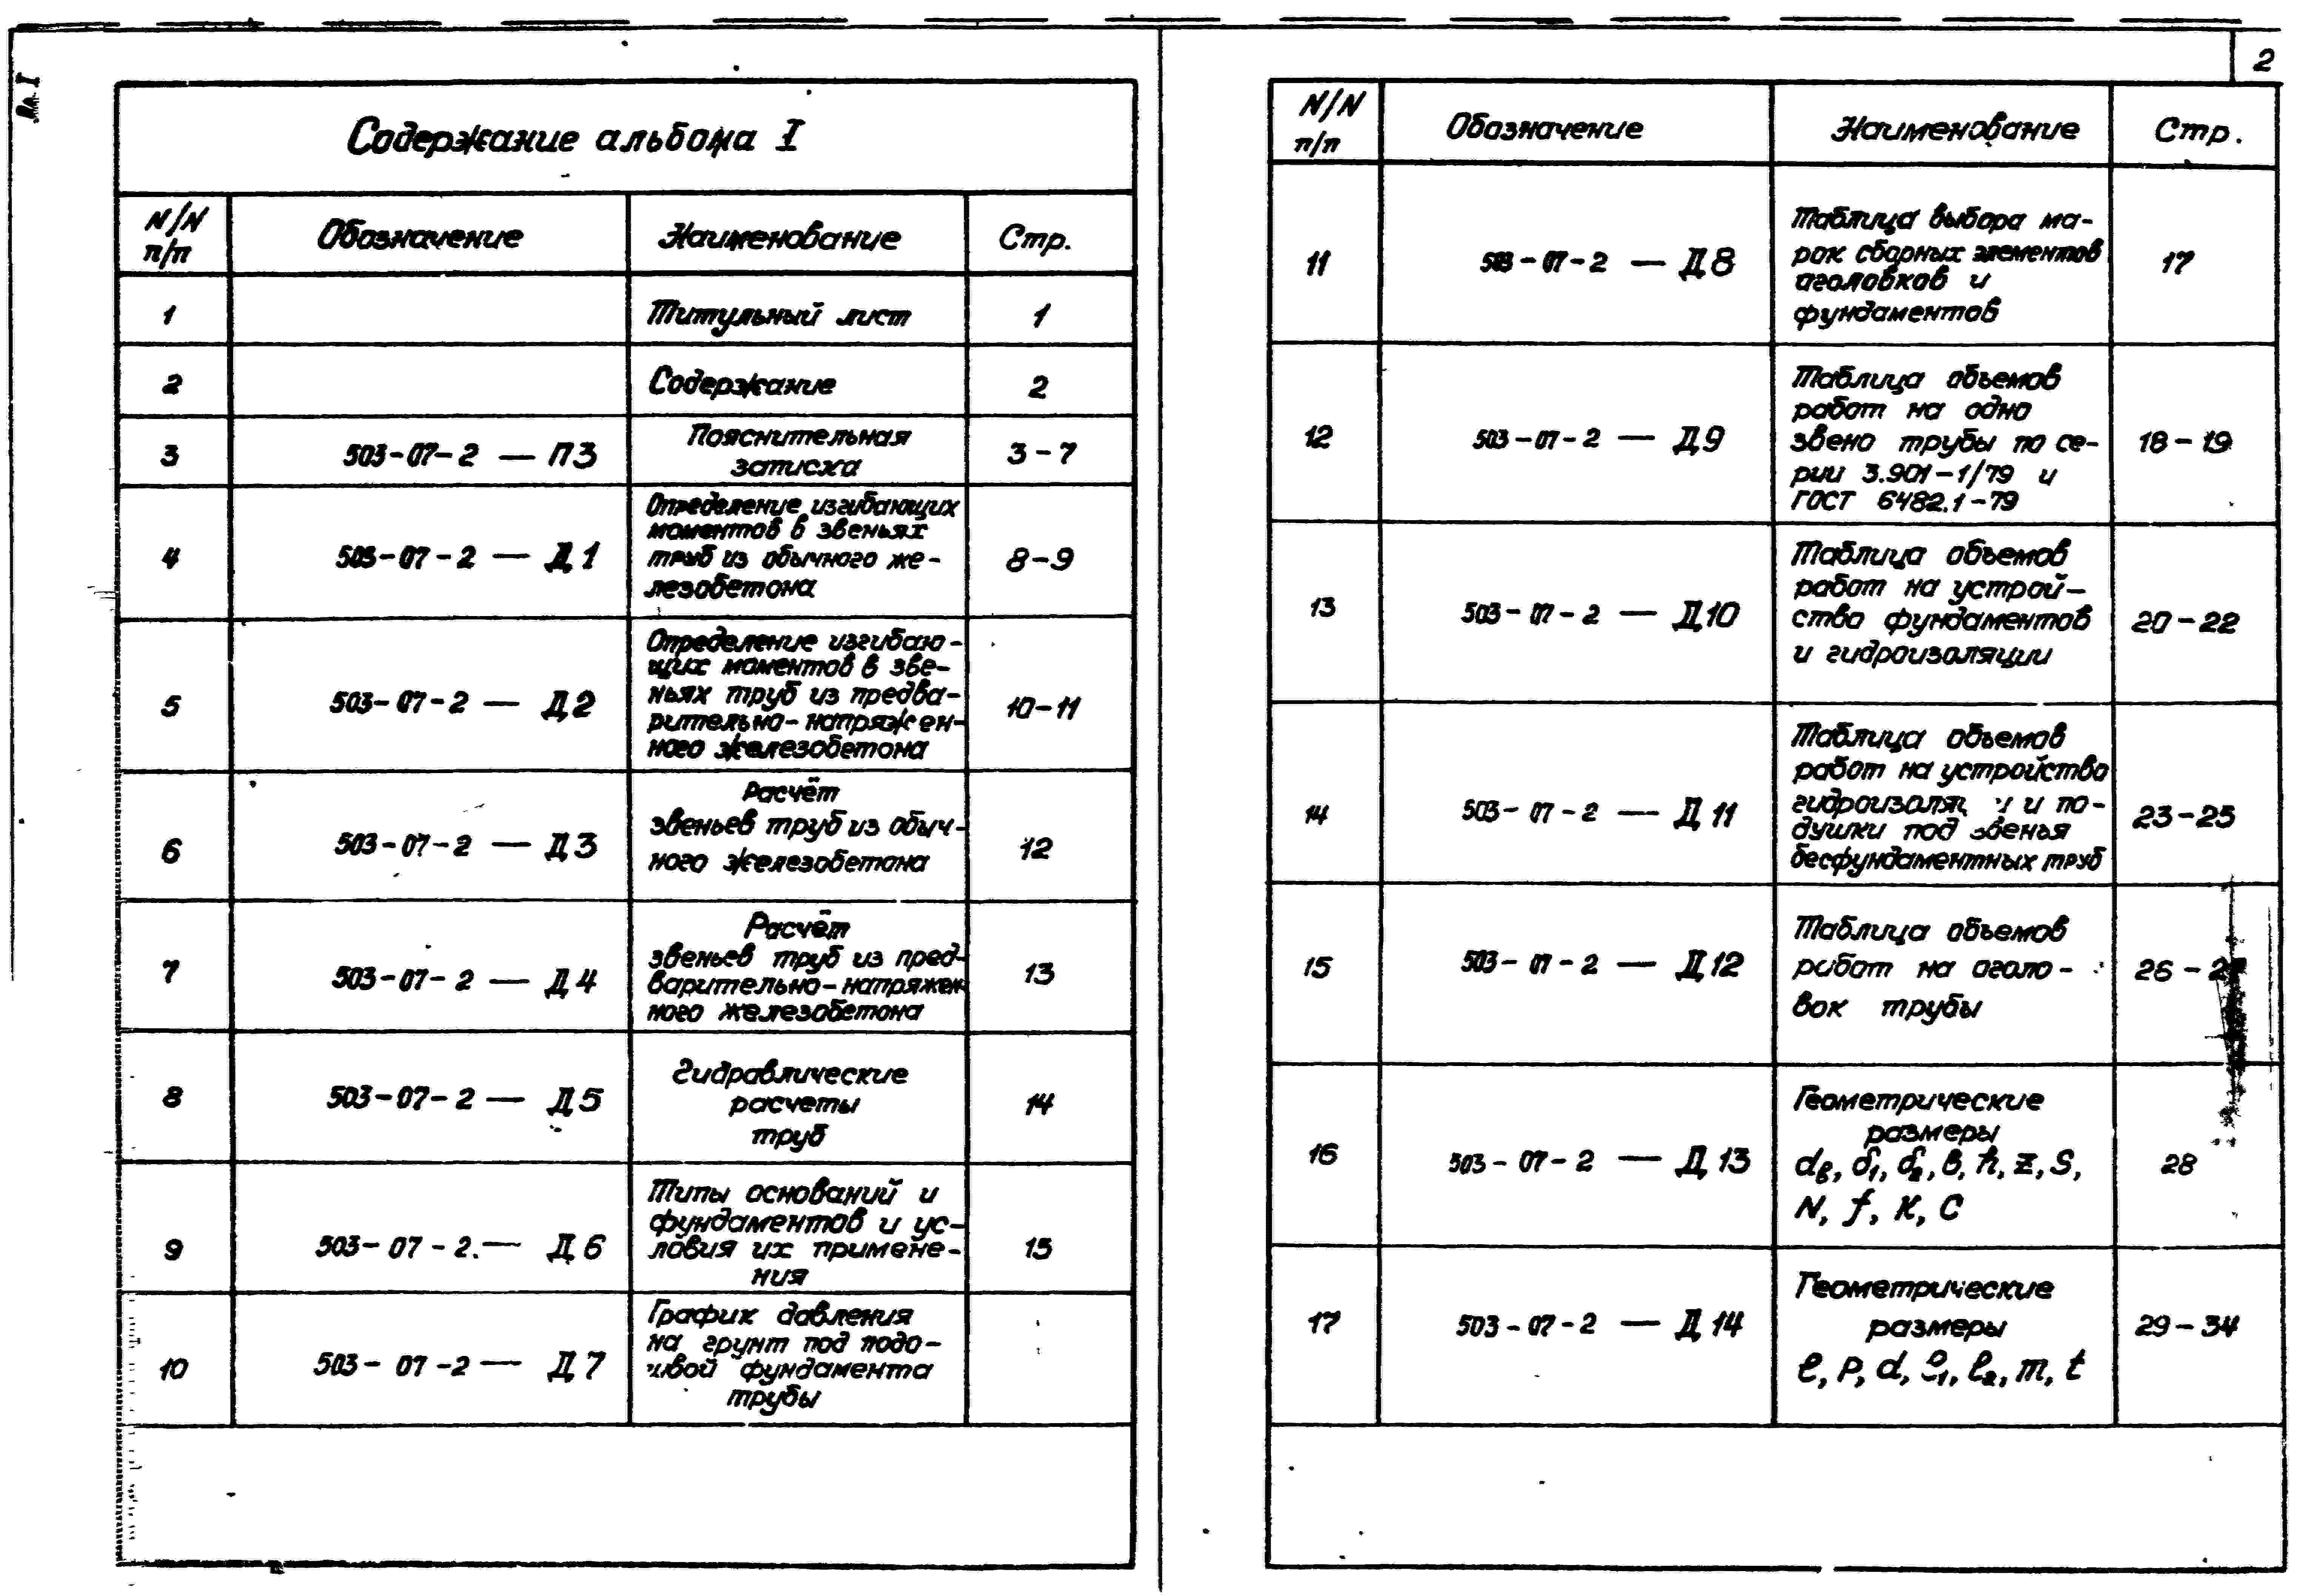 2
Ал. I
Содержание альбома I
N/N
п/п
Обозначение
Наименование
Стр.
1
Титульный лист
1
2
Содержание
2
3
503-07-2 — ПЗ
Пояснительная
записка
3-7
4
503-07-2 — Д1
Определение изгибающих
моментов в звеньях
труб из обычного же-
лезобетона
8-9
5
503-07-2 — Д2
Определение изгибаю-
щих моментов в зве-
ньях труб из предва-
рительно-напряжен-
ного железобетона
10-11
6
503-07-2 — Д3
Расчёт
звеньев труб из обыч-
ного железобетона
12
7
503-07-2 — Д4
Расчёт
звеньев труб из пред-
варительно-напряжен
ного железобетона
13
8
503-07-2 — Д5
Гидравлические
расчеты
труб
14
9
503-07-2. — Д6
Типы оснований и
фундаментов и ус-
ловия их примене-
ния
15
10
503-07-2 — Д7
График давления
на грунт под подо-
швой фундамента
трубы
N/N
п/п
Обозначение
Наименование
Стр.
11
503-07-2 — Д8
Таблица выбора ма-
рок сборных элементов
оголовков и
фундаментов
17
12
503-07-2 — Д9
Таблица объемов
работ на одно
звено трубы по се-
рии 3.901-1/79 и
ГОСТ 6482.1-79
18-19
13
503-07-2 — Д10
Таблица объемов
работ на устрой-
ство фундаментов
и гидроизоляции
20-22
14
503-07-2 — Д11
Таблица объемов
работ на устройство
и по-
душки под звенья
бесфундаментных труб
23-25
15
503-07-2 — Д12
Таблица объемов
работ на оголо-
вок трубы
26-
16
503-07-2 — Д13
Геометрические
размеры
dв, δ1, δ2, в, h, z, S,
N, f, K, C
28
17
503-07-2 — Д14
Геометрические
размеры
ℓ, P, d, ℓ1, ℓ2, m, t
29-34